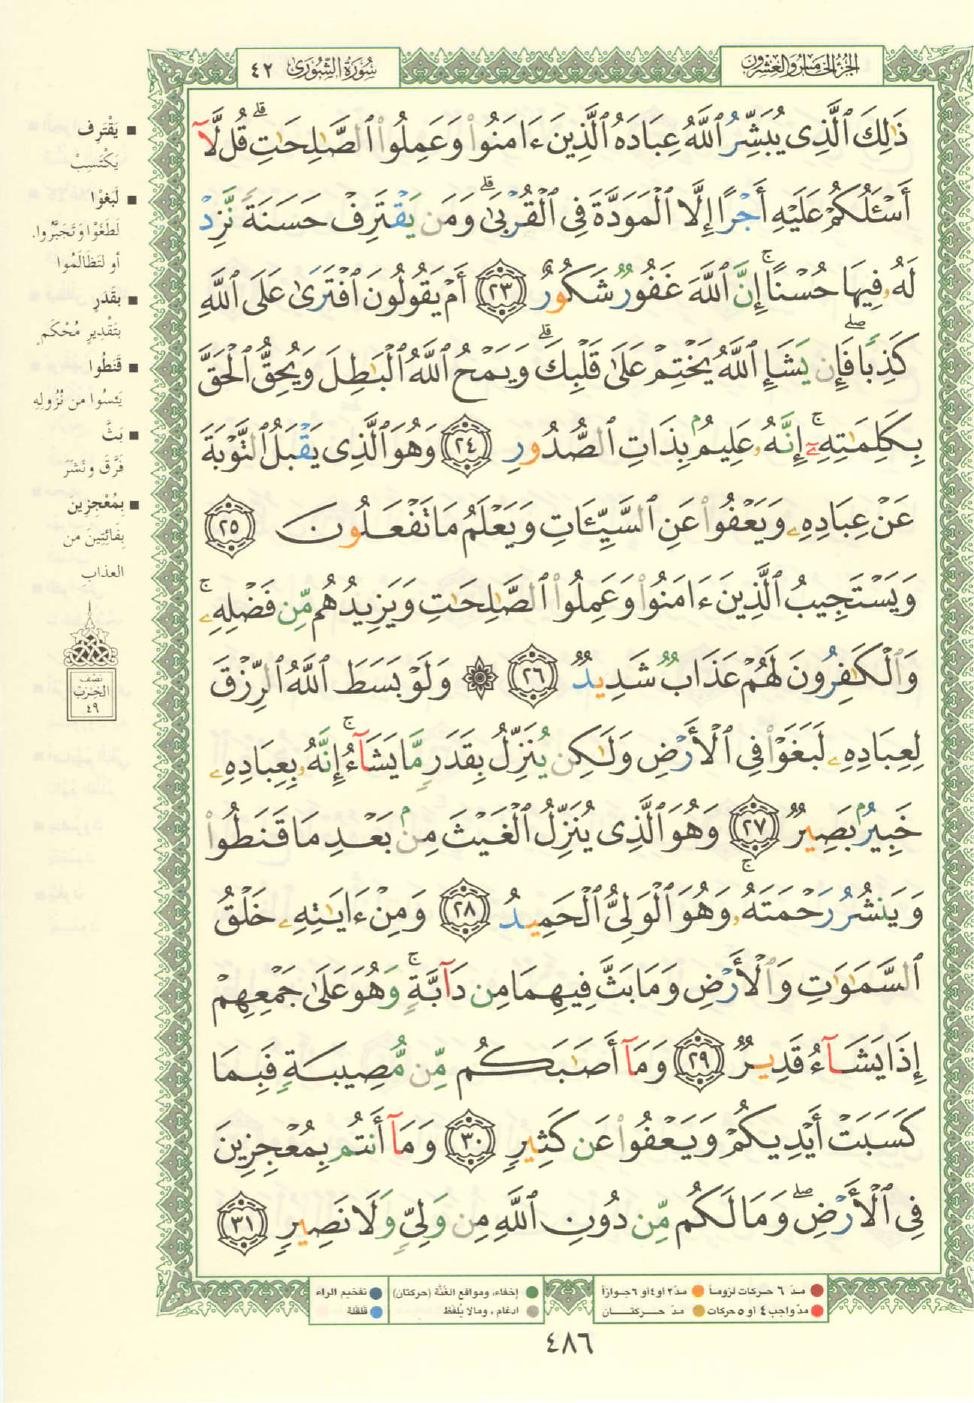 الجزء الخامس والعشرون
سورة الشورى ٤٢
ذَٰلِكَ ٱلَّذِى يُبَشِّرُ ٱللَّهُ عِبَادَهُ ٱلَّذِينَ ءَامَنُوا۟ وَعَمِلُوا۟ ٱلصَّـٰلِحَـٰتِ ۗ قُل لَّآ
أَسْـَٔلُكُمْ عَلَيْهِ أَجْرًا إِلَّا ٱلْمَوَدَّةَ فِى ٱلْقُرْبَىٰ ۗ وَمَن يَقْتَرِفْ حَسَنَةً نَّزِدْ
لَهُۥ فِيهَا حُسْنًا ۚ إِنَّ ٱللَّهَ غَفُورٌ شَكُورٌ ٢٣ أَمْ يَقُولُونَ ٱفْتَرَىٰ عَلَى ٱللَّهِ
كَذِبًا ۖ فَإِن يَشَإِ ٱللَّهُ يَخْتِمْ عَلَىٰ قَلْبِكَ ۗ وَيَمْحُ ٱللَّهُ ٱلْبَـٰطِلَ وَيُحِقُّ ٱلْحَقَّ
بِكَلِمَـٰتِهِۦٓ ۚ إِنَّهُۥ عَلِيمٌۢ بِذَاتِ ٱلصُّدُورِ ٢٤ وَهُوَ ٱلَّذِى يَقْبَلُ ٱلتَّوْبَةَ
عَنْ عِبَادِهِۦ وَيَعْفُوا۟ عَنِ ٱلسَّيِّـَٔاتِ وَيَعْلَمُ مَا تَفْعَلُونَ ٢٥
وَيَسْتَجِيبُ ٱلَّذِينَ ءَامَنُوا۟ وَعَمِلُوا۟ ٱلصَّـٰلِحَـٰتِ وَيَزِيدُهُم مِّن فَضْلِهِۦ ۚ
وَٱلْكَـٰفِرُونَ لَهُمْ عَذَابٌ شَدِيدٌ ٢٦ ۞ وَلَوْ بَسَطَ ٱللَّهُ ٱلرِّزْقَ
لِعِبَادِهِۦ لَبَغَوْا۟ فِى ٱلْأَرْضِ وَلَـٰكِن يُنَزِّلُ بِقَدَرٍ مَّا يَشَآءُ ۚ إِنَّهُۥ بِعِبَادِهِۦ
خَبِيرٌۢ بَصِيرٌ ٢٧ وَهُوَ ٱلَّذِى يُنَزِّلُ ٱلْغَيْثَ مِنۢ بَعْدِ مَا قَنَطُوا۟
وَيَنشُرُ رَحْمَتَهُۥ ۚ وَهُوَ ٱلْوَلِىُّ ٱلْحَمِيدُ ٢٨ وَمِنْ ءَايَـٰتِهِۦ خَلْقُ
ٱلسَّمَـٰوَٰتِ وَٱلْأَرْضِ وَمَا بَثَّ فِيهِمَا مِن دَآبَّةٍ ۚ وَهُوَ عَلَىٰ جَمْعِهِمْ
إِذَا يَشَآءُ قَدِيرٌ ٢٩ وَمَآ أَصَـٰبَكُم مِّن مُّصِيبَةٍ فَبِمَا
كَسَبَتْ أَيْدِيكُمْ وَيَعْفُوا۟ عَن كَثِيرٍ ٣٠ وَمَآ أَنتُم بِمُعْجِزِينَ
فِى ٱلْأَرْضِ ۖ وَمَا لَكُم مِّن دُونِ ٱللَّهِ مِن وَلِىٍّ وَلَا نَصِيرٍ ٣١
■ يَقْتَرِف
يَكْتَسِبْ
■ لَبَغَوْا
لَطَغَوْا وَتَجَبَّرُوا.
أو لتَظَالَمُوا
■ بقَدَرٍ
بتَقْدِيرٍ مُحْكَمٍ
■ قَنَطُوا
يَئِسُوا من نُزُولِهِ
■ بَثَّ
فَرَّقَ ونَشَرَ
■ بمُعْجِزِينَ
بِفَائِتِينَ من
العذابِ
نصف
الحزب
٤٩
مدّ ٦ حركات لزوماً
مدّ ٢ أو ٤ أو ٦ جوازاً
إخفاء، ومواقع الغُنَّة (حركتان)
تفخيم الراء
مدّ واجب ٤ أو ٥ حركات
مدّ حركتان
ادغام، ومالا يُلفَظ
قلقلة
٤٨٦